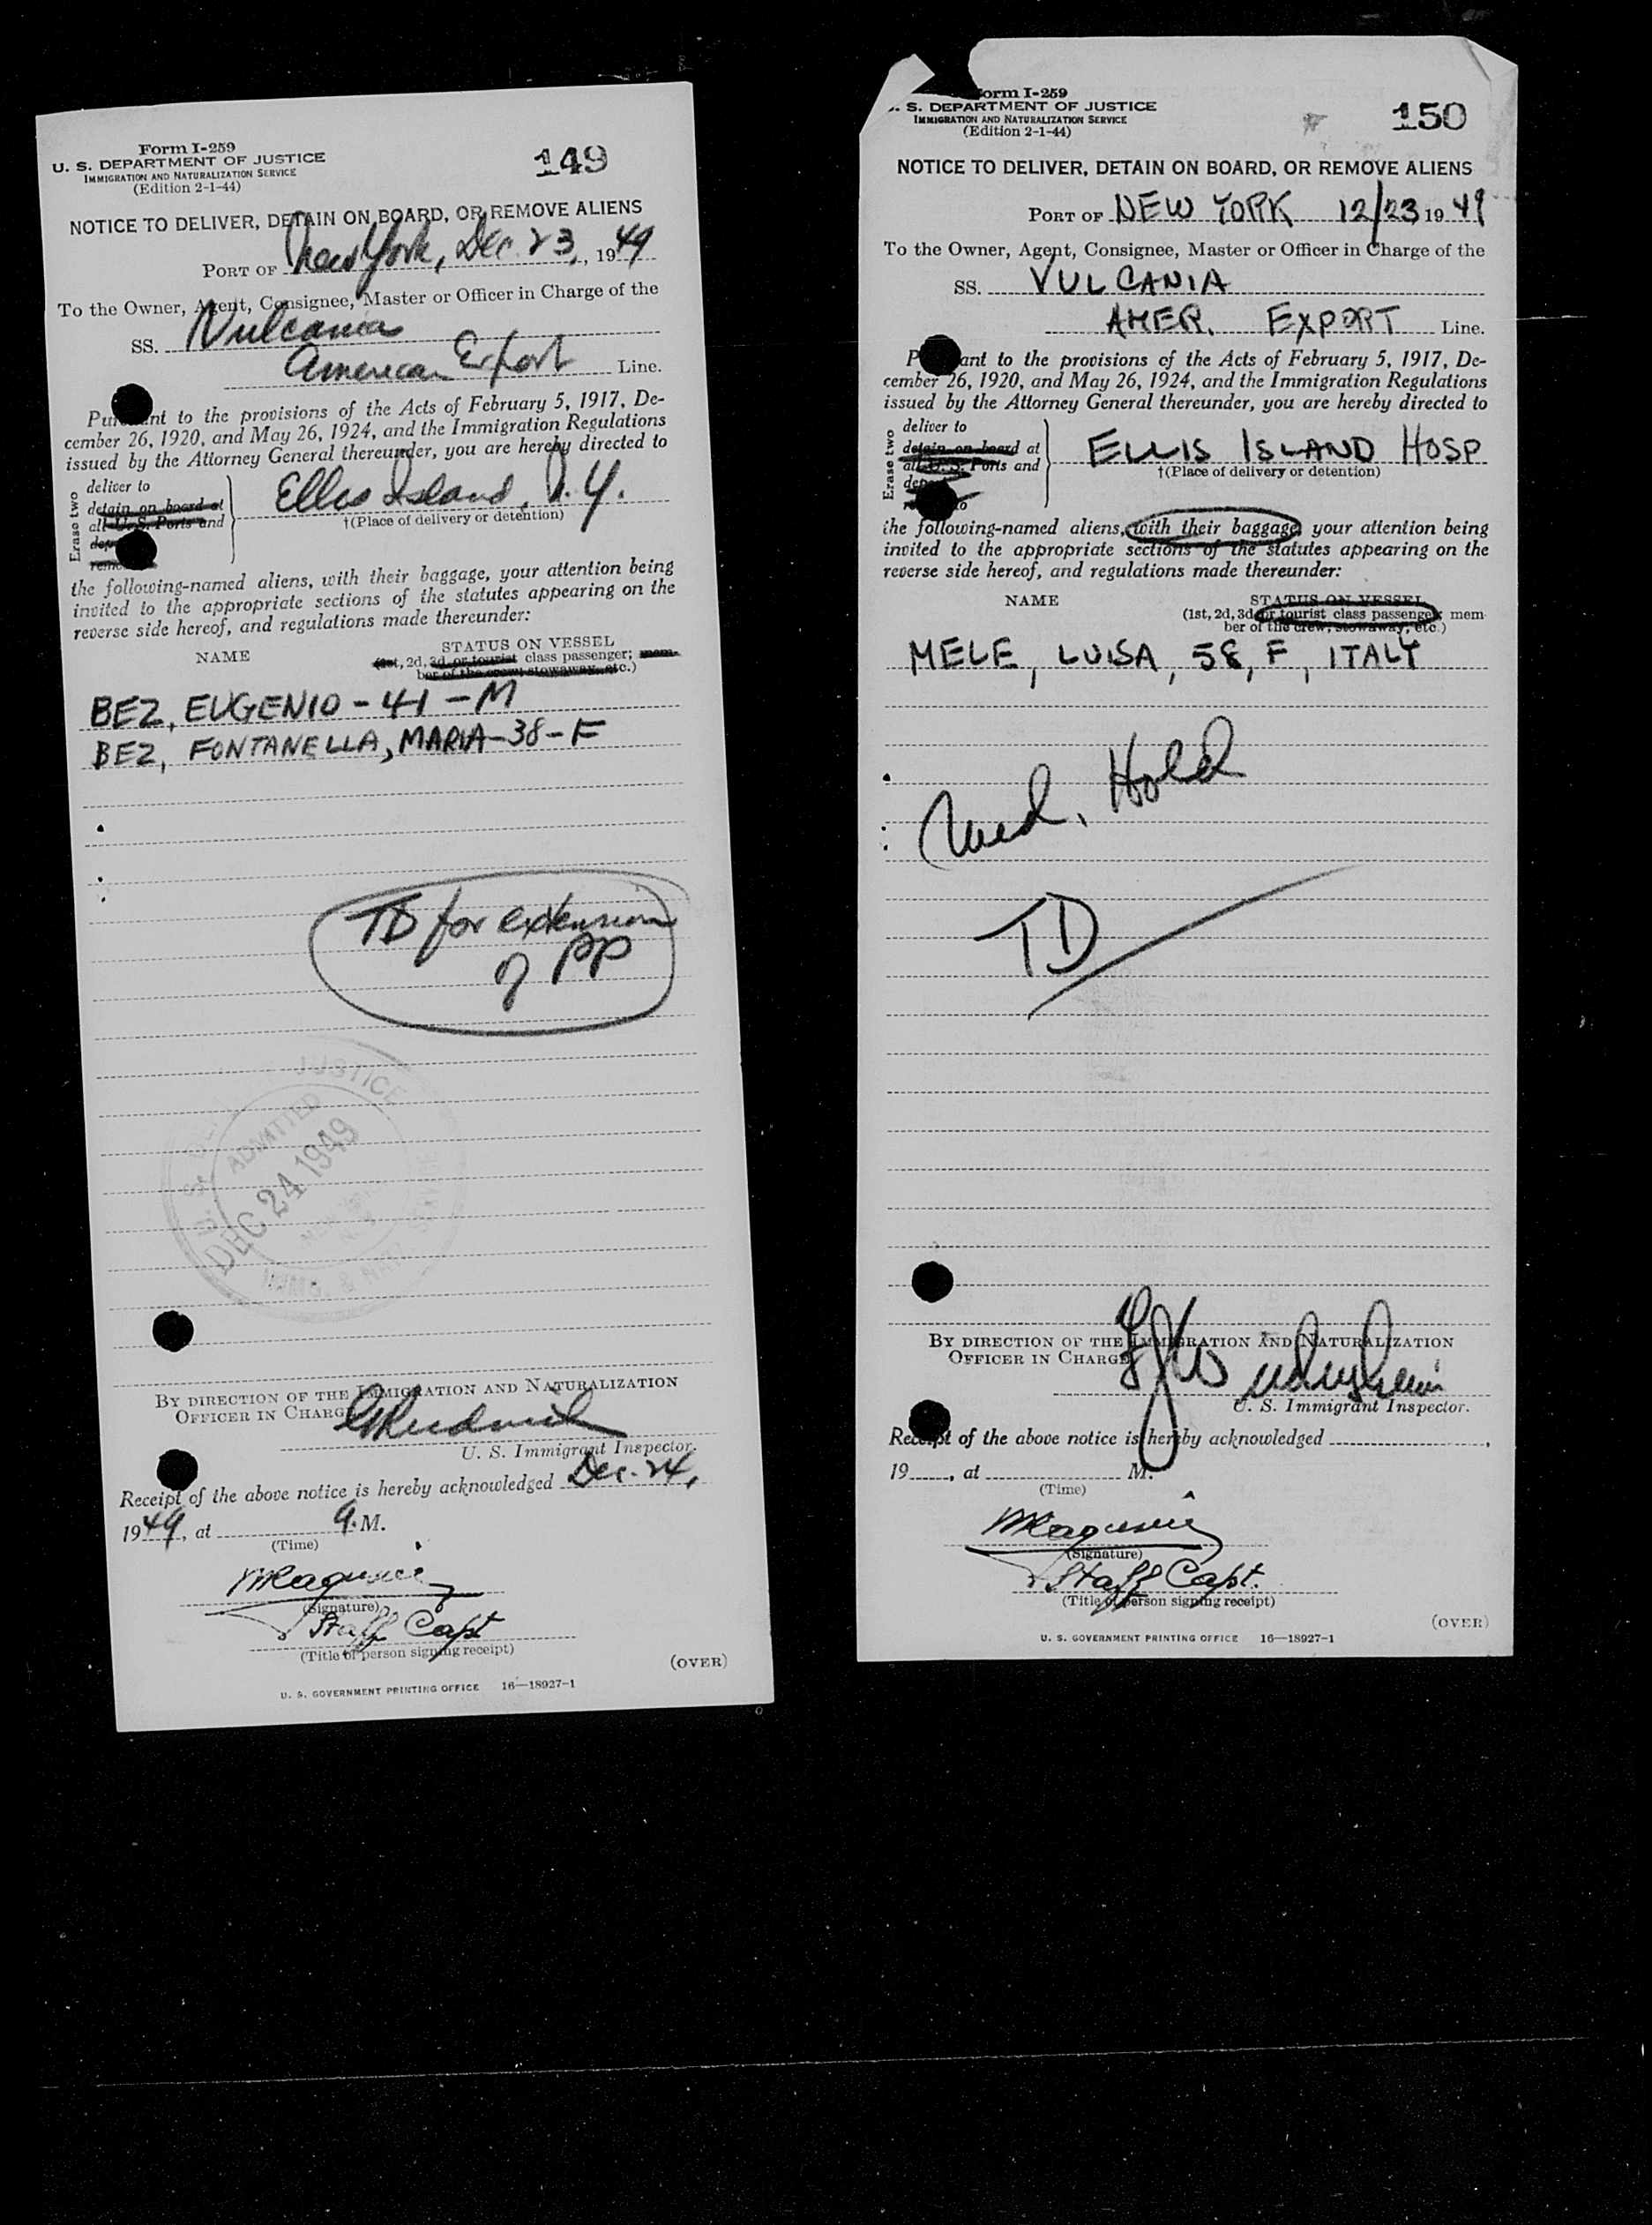 Form I-259
U. S. DEPARTMENT OF JUSTICE
IMMIGRATION AND NATURALIZATION SERVICE
(Edition 2-1-44)
149
NOTICE TO DELIVER, DETAIN ON BOARD, OR REMOVE ALIENS
PORT OF New York, Dec. 23, 1949
To the Owner, Agent, Consignee, Master or Officer in Charge of the
SS. Vulcania
American Export Line.
Pursuant to the provisions of the Acts of February 5, 1917, De-
cember 26, 1920, and May 26, 1924, and the Immigration Regulations
issued by the Attorney General thereunder, you are hereby directed to
Erase two
deliver to
detain on board at
all U. S. Ports and
Ellis Island, N.Y.
†(Place of delivery or detention)
the following-named aliens, with their baggage, your attention being
invited to the appropriate sections of the statutes appearing on the
reverse side hereof, and regulations made thereunder:
NAME
STATUS ON VESSEL
(1st, 2d, 3d or tourist class passenger; mem-
ber of the crew, stowaway, etc.)
BEZ, EUGENIO - 41 - M
BEZ, FONTANELLA, MARIA - 38 - F
TD for extension
of PP
JUSTICE
ADMITTED
DEC 24 1949
BY DIRECTION OF THE IMMIGRATION AND NATURALIZATION
OFFICER IN CHARGE
U. S. Immigrant Inspector.
Receipt of the above notice is hereby acknowledged Dec. 24,
1949, at 9. M.
(Time)
(Signature)
Staff Capt
(Title of person signing receipt)
(OVER)
U. S. GOVERNMENT PRINTING OFFICE 16—18927-1
Form I-259
U. S. DEPARTMENT OF JUSTICE
IMMIGRATION AND NATURALIZATION SERVICE
(Edition 2-1-44)
150
NOTICE TO DELIVER, DETAIN ON BOARD, OR REMOVE ALIENS
PORT OF NEW YORK 12/23 1949
To the Owner, Agent, Consignee, Master or Officer in Charge of the
SS. VULCANIA
AMER. EXPORT Line.
Pursuant to the provisions of the Acts of February 5, 1917, De-
cember 26, 1920, and May 26, 1924, and the Immigration Regulations
issued by the Attorney General thereunder, you are hereby directed to
Erase two
deliver to
detain on board at
all U. S. Ports and
ELLIS ISLAND HOSP
†(Place of delivery or detention)
the following-named aliens, with their baggage, your attention being
invited to the appropriate sections of the statutes appearing on the
reverse side hereof, and regulations made thereunder:
NAME
STATUS ON VESSEL
(1st, 2d, 3d or tourist class passenger; mem-
ber of the crew, stowaway, etc.)
MELE, LUISA, 58, F, ITALY
Med. Hold
TD
BY DIRECTION OF THE IMMIGRATION AND NATURALIZATION
OFFICER IN CHARGE
U. S. Immigrant Inspector.
Receipt of the above notice is hereby acknowledged
19 , at M.
(Time)
(Signature)
Staff Capt.
(Title of person signing receipt)
(OVER)
U. S. GOVERNMENT PRINTING OFFICE 16—18927-1